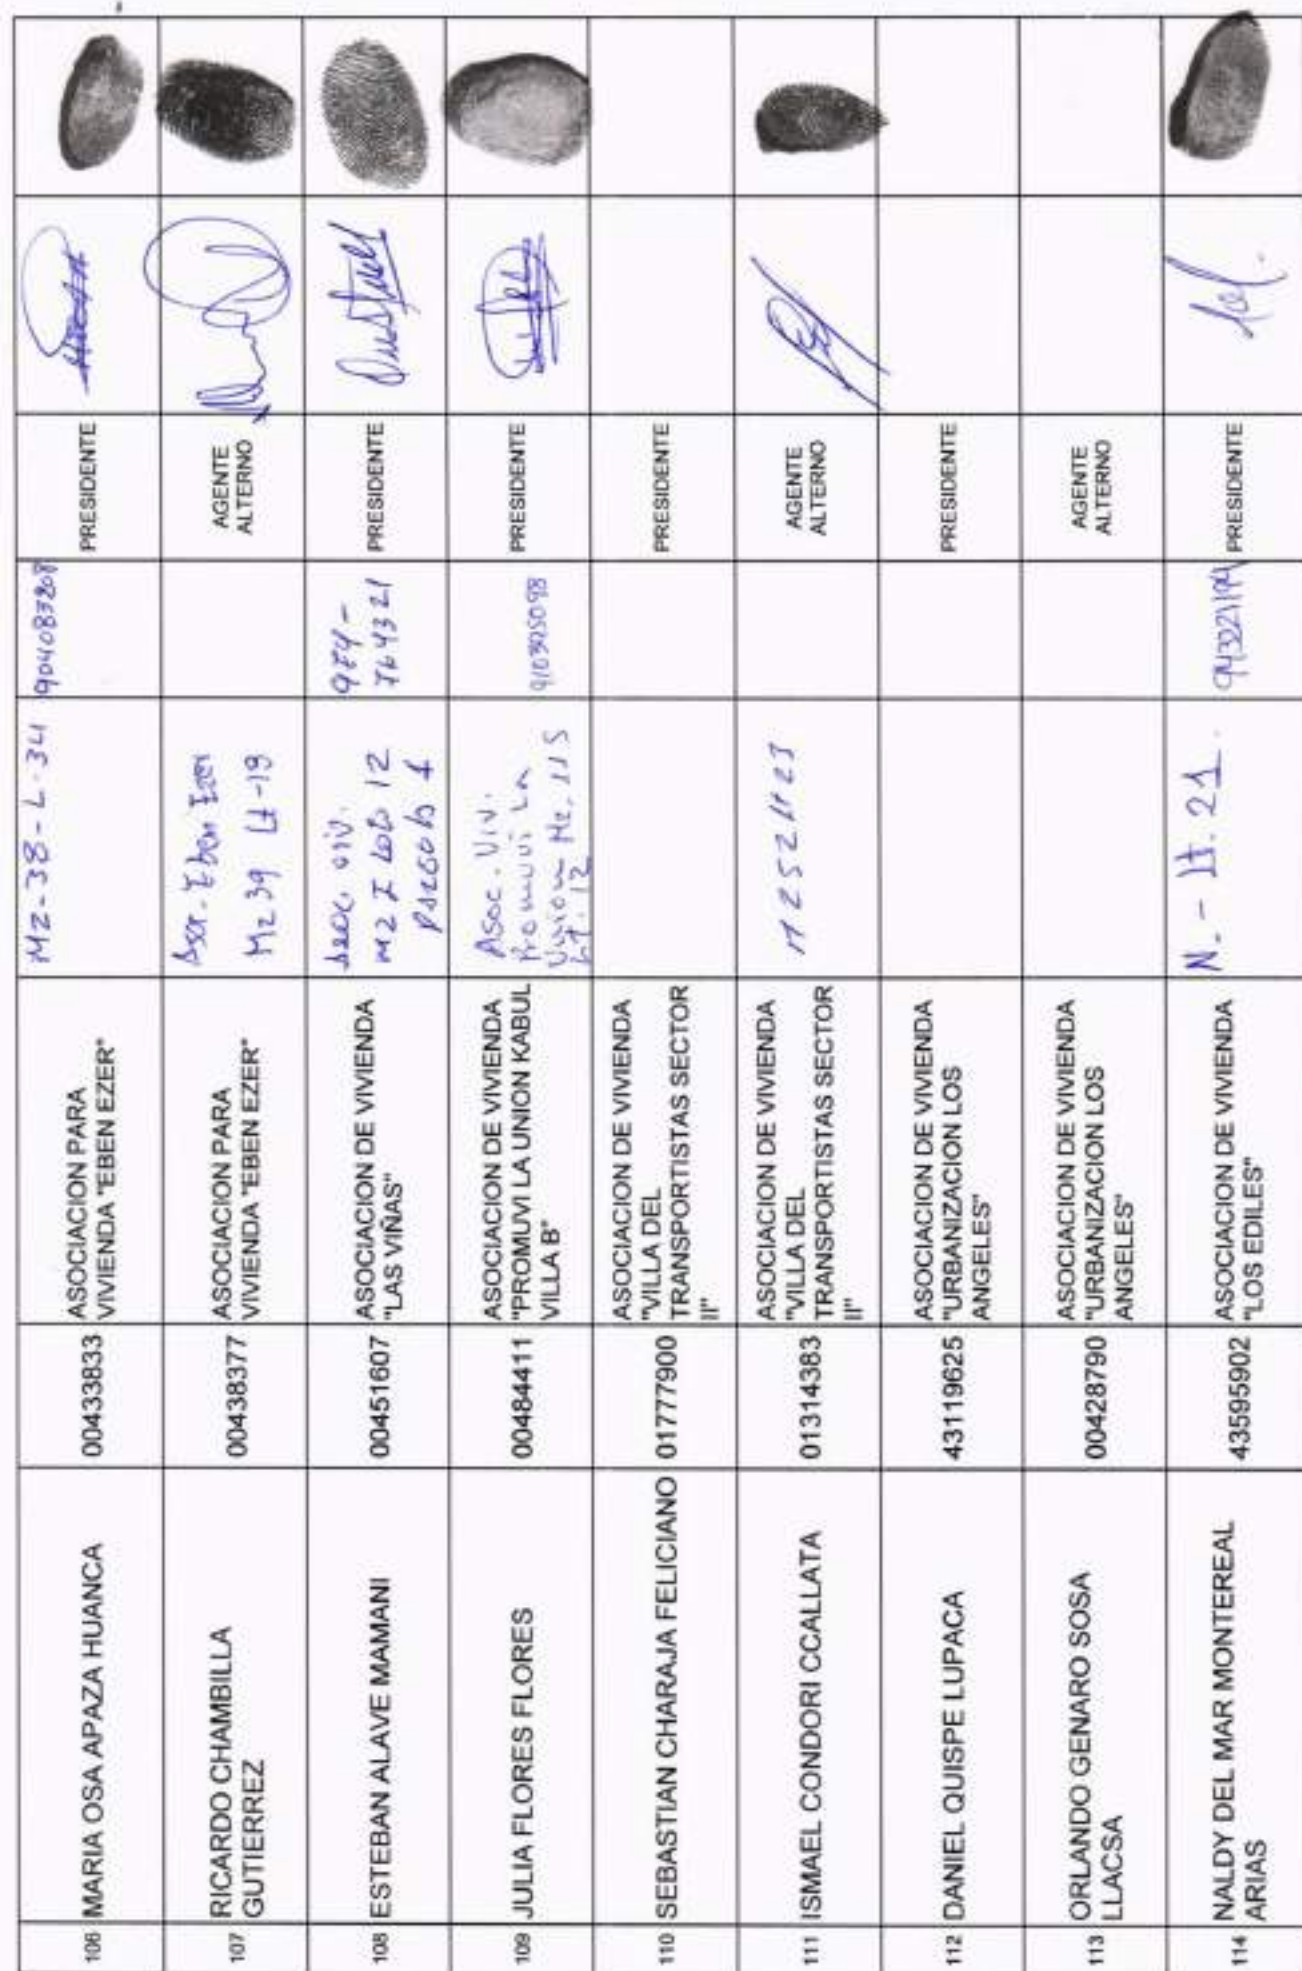 106
MARIA OSA APAZA HUANCA
00433833
ASOCIACION PARA
VIVIENDA "EBEN EZER"
MZ-38-L-34
904083208
PRESIDENTE
107
RICARDO CHAMBILLA
GUTIERREZ
00438377
ASOCIACION PARA
VIVIENDA "EBEN EZER"
Asoc. Eben Ezer
Mz 39 Lt-19
AGENTE
ALTERNO
108
ESTEBAN ALAVE MAMANI
00451607
ASOCIACION DE VIVIENDA
"LAS VIÑAS"
viv.
mz I Lote 12
974-
764321
PRESIDENTE
109
JULIA FLORES FLORES
00484411
ASOCIACION DE VIVIENDA
"PROMUVI LA UNION KABUL
VILLA B"
Asoc. Viv.
Promuvi La
Union Mz. 115
Lt. 12
PRESIDENTE
110
SEBASTIAN CHARAJA FELICIANO
01777900
ASOCIACION DE VIVIENDA
"VILLA DEL
TRANSPORTISTAS SECTOR
II"
PRESIDENTE
111
ISMAEL CONDORI CCALLATA
01314383
ASOCIACION DE VIVIENDA
"VILLA DEL
TRANSPORTISTAS SECTOR
II"
AGENTE
ALTERNO
112
DANIEL QUISPE LUPACA
43119625
ASOCIACION DE VIVIENDA
"URBANIZACION LOS
ANGELES"
PRESIDENTE
113
ORLANDO GENARO SOSA
LLACSA
00428790
ASOCIACION DE VIVIENDA
"URBANIZACION LOS
ANGELES"
AGENTE
ALTERNO
114
NALDY DEL MAR MONTEREAL
ARIAS
43595902
ASOCIACION DE VIVIENDA
"LOS EDILES"
N. - Lt. 21.
PRESIDENTE